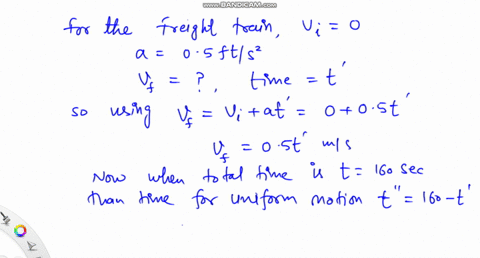 WWW.BANDICAM.COM
for the freight train, Vi = 0
a = 0.5 ft/s²
Vf = ?, time = t'
so using Vf = Vi + at' = 0 + 0.5t'
Vf = 0.5t' m/s
Now when total time is t = 160 sec
than time for uniform motion t" = 160 - t'